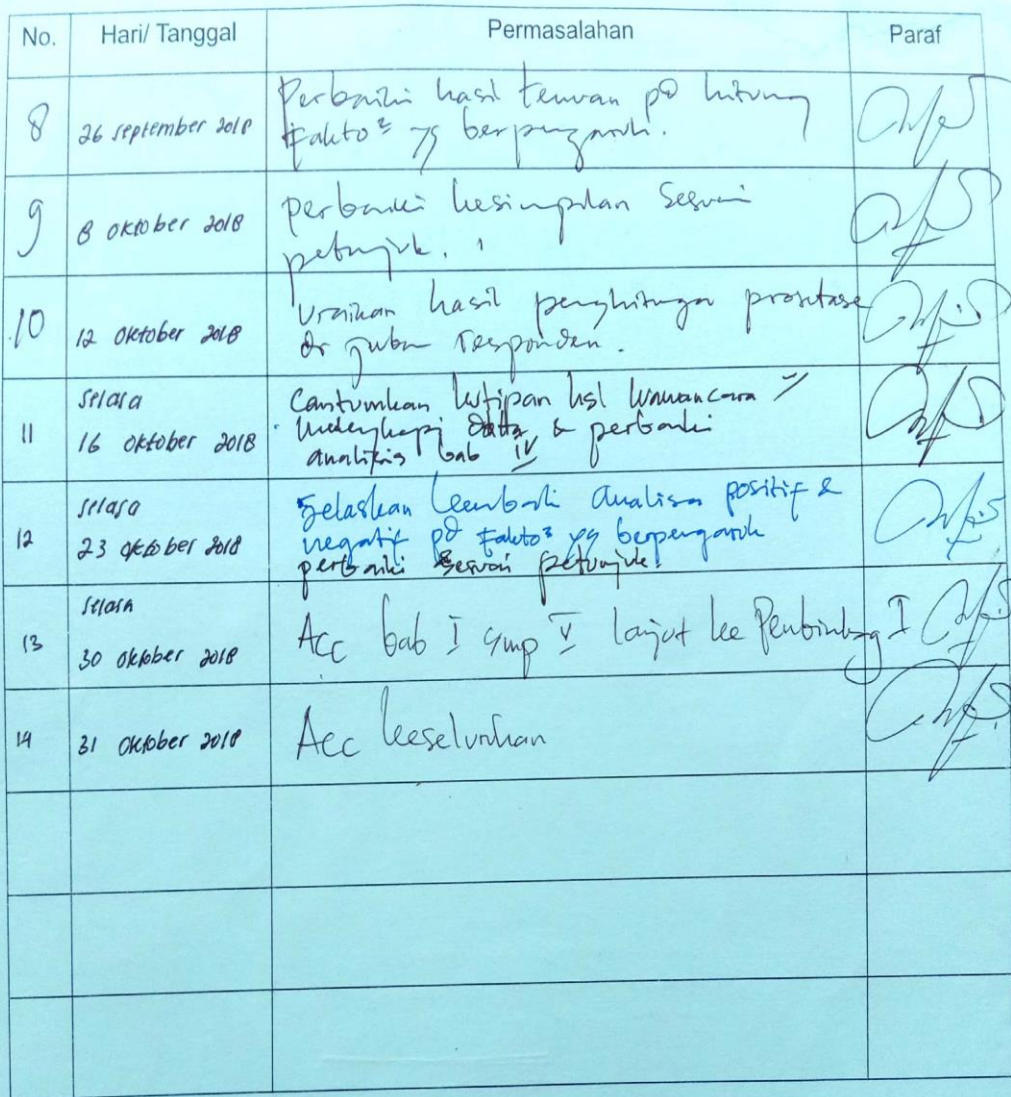 No. Hari/ Tanggal Permasalahan Paraf
8 26 september 2018 Perbaiki hasil temuan pd hitung
Fakto² yg berpengaruh.
9 8 oktober 2018 perbaiki kesimpulan Sesuai
petunjuk.
10 12 oktober 2018 Uraikan hasil penghitungan prosetase
dr responden.
selasa
11 16 oktober 2018 Cantumkan kutipan hsl wawancara
melengkapi data & perbaiki
analisis bab IV
selasa
12 23 oktober 2018 Jelaskan kembali analisa positif &
negatif pd fakto² yg berpengaruh
perbaiki sesuai petunjuk.
selasa
13 30 oktober 2018 Acc bab I smp V lanjut ke Pembimbing I
14 31 oktober 2018 Acc keseluruhan